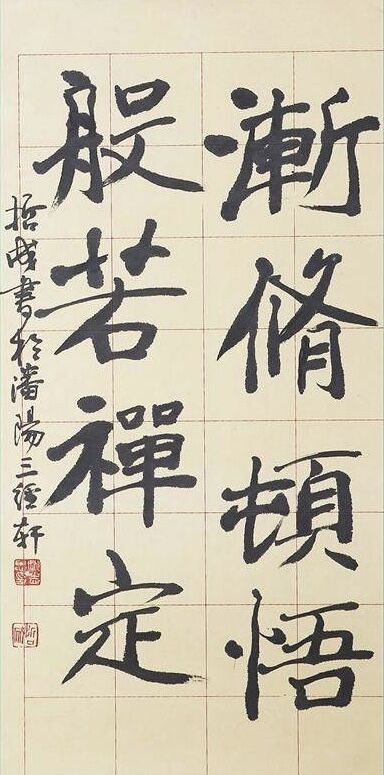 漸脩頓悟
般若禪定
哲成書於瀋陽三經軒